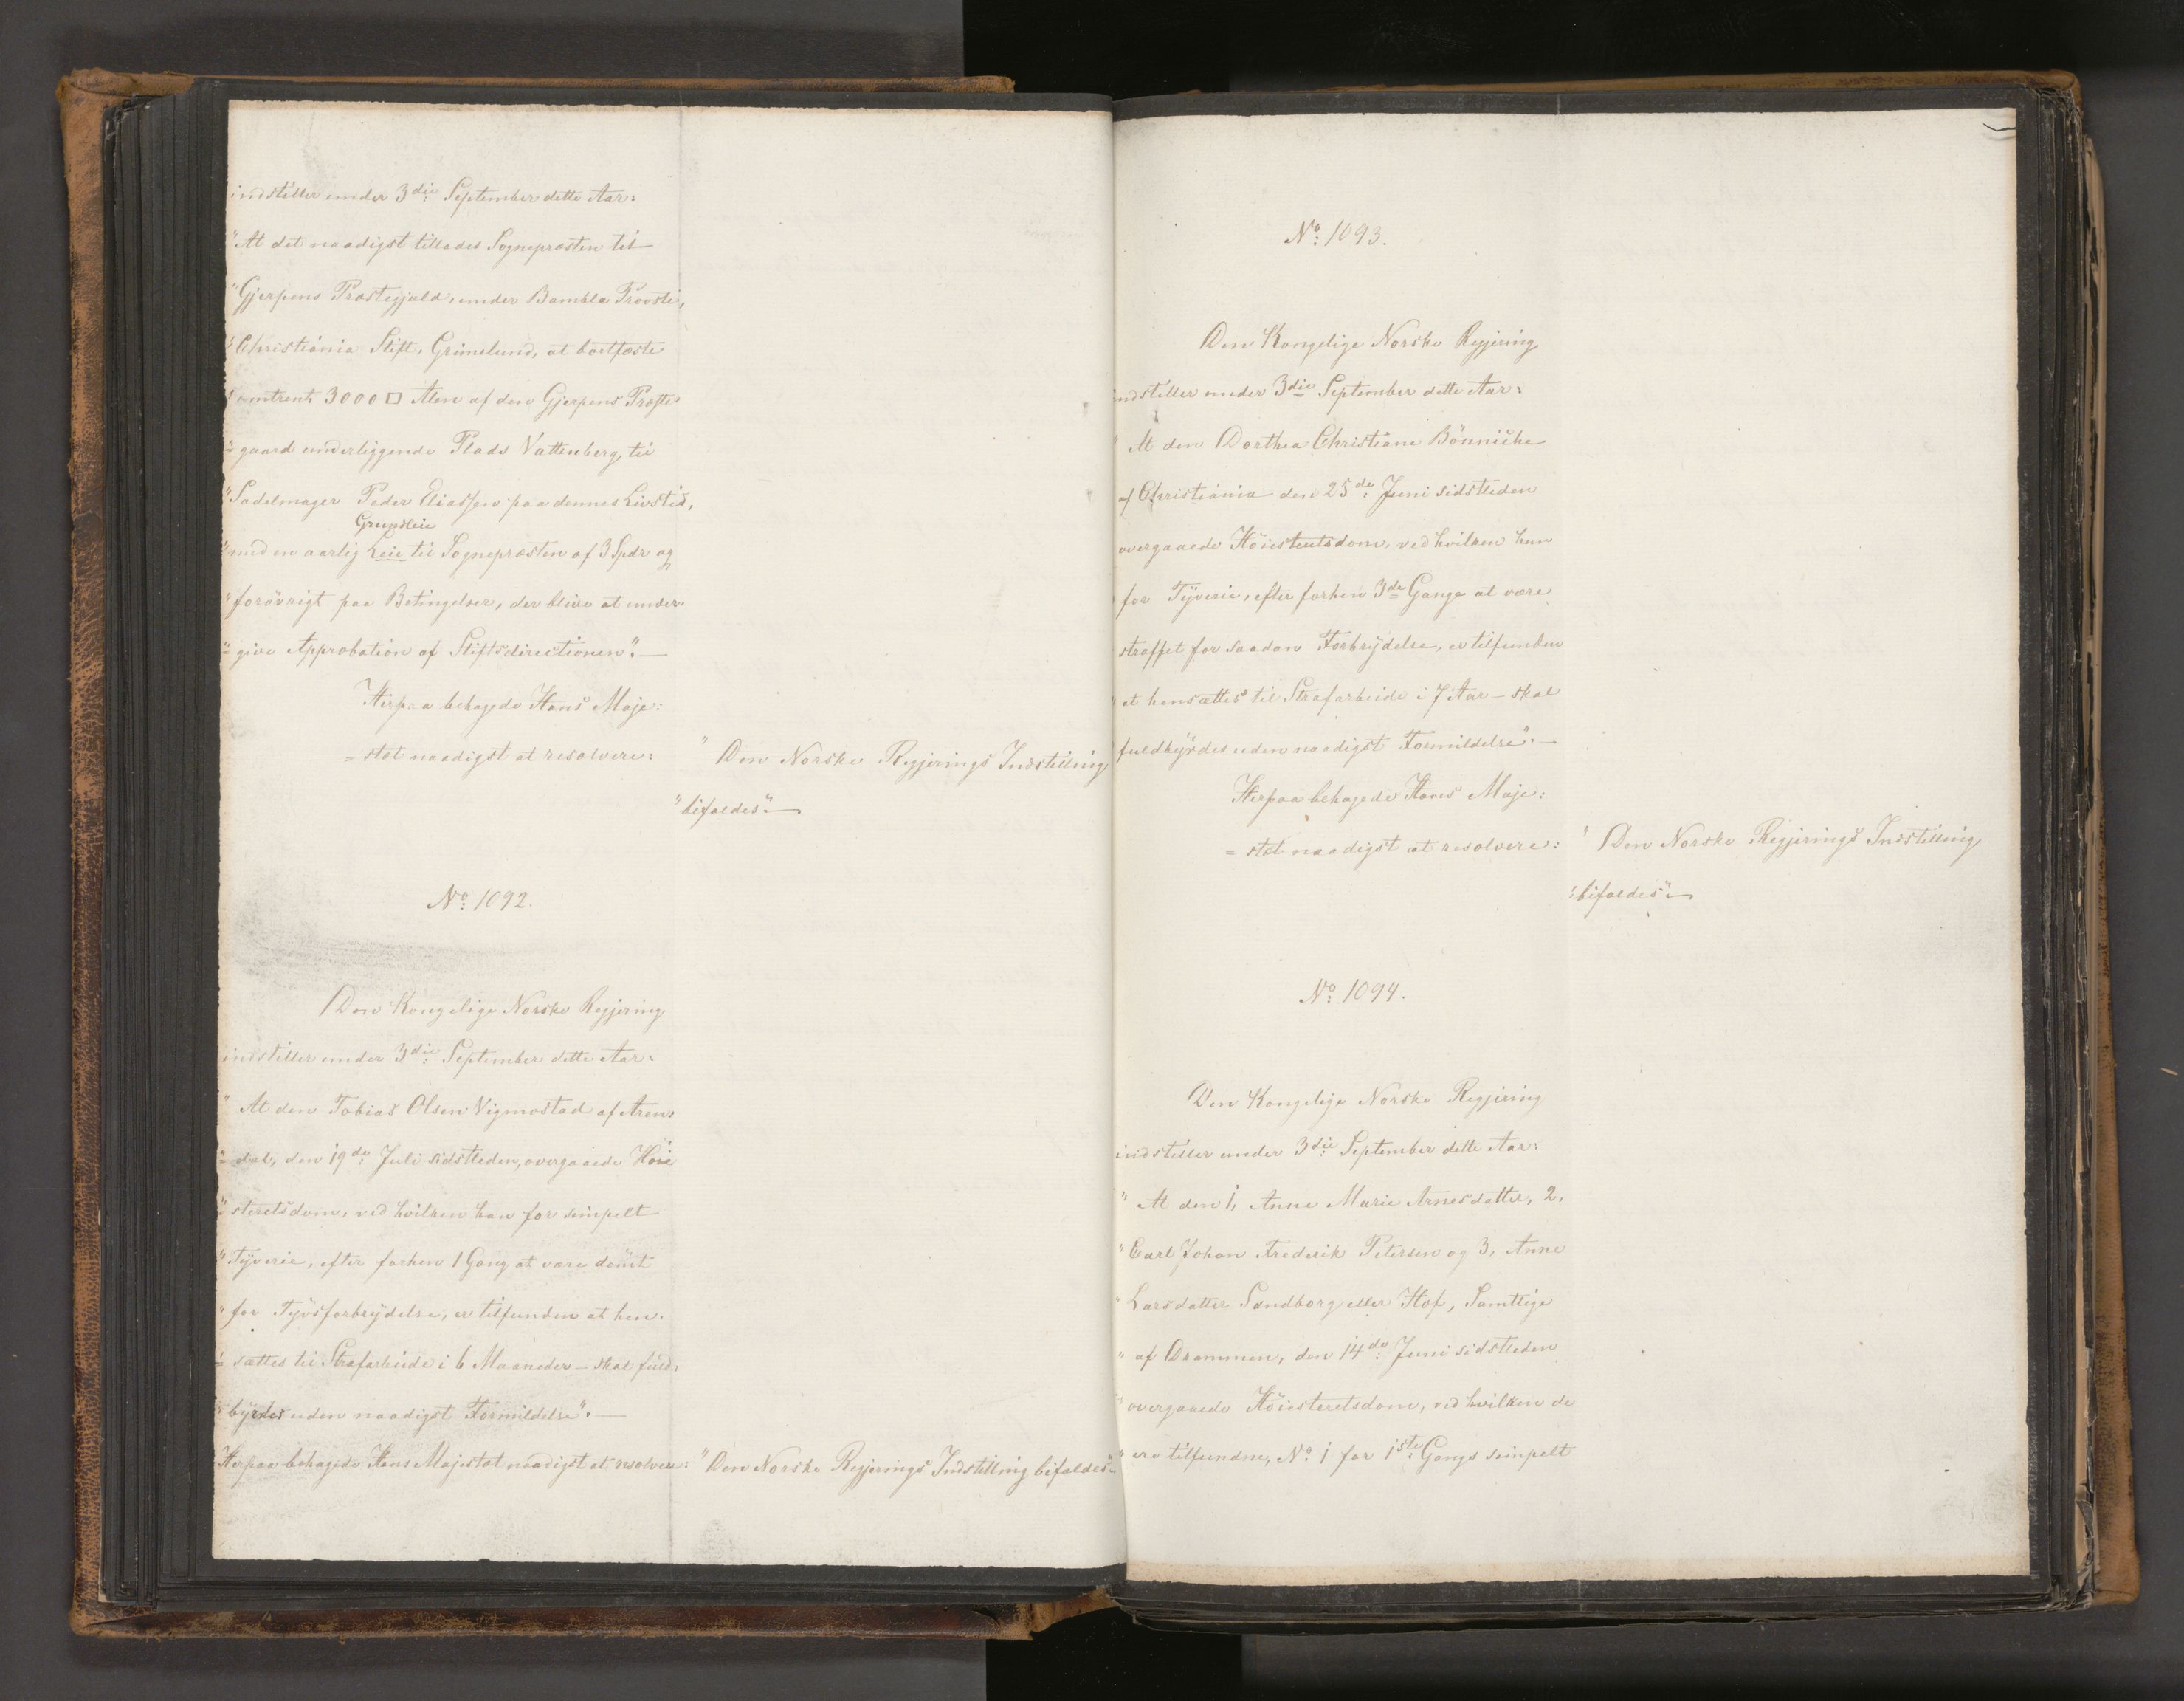 indstiller under 3die September dette Aar:
"At det naadigst tillades Sognepræsten til
"Gjerpens Præstegjeld, under Bamble Provsti,
"Christiania Stift, Grimelund, at bortfæste
"omtrent 3000 □ Alen af den Gjerpens Præste-
"=gaard underliggende Plads Vattenberg, til
"Sadelmager Peder Eliassen paa dennes Livstid,
Grundleie
"med en aarlig Leie til Sognepræsten af 3 Spdr og
"forövrigt paa Betingelser, der blive at under-
"=give Approbation af Stiftsdirectionen".—
Herpaa behagede Hans Maje:
=stæt naadigst at resolvere:
"Den Norske Regjerings Indstilling
"bifaldes".—
No: 1092.
Den Kongelige Norske Regjering
indstiller under 3die September dette Aar:
"At den Tobias Olsen Vigmostad af Aren-
"=dal, den 19de Juli sidstleden, overgaaede Höie
"=steretsdom, ved hvilken han for simpelt
"Tyverie, efter forhen 1 Gang at være dömt
"for Tyvsforbrydelse, er tilfunden at hen-
"=sættes til Strafarbeide i 6 Maaneder – skal fuld-
"byrdes uden naadigst Formildelse".—
Herpaa behagede Hans Majestæt naadigst at resolvere:
"Den Norske Regjerings Indstilling bifaldes".
No: 1093.
Den Kongelige Norske Regjering
indstiller under 3die September dette Aar:
"At den Dorthea Christiane Bönniche
af Christiania den 25de Juni sidstleden
overgaaede Höiesteretsdom, ved hvilken hun
for Tyverie, efter forhen 3de Gange at være
straffet for saadan Forbrydelse, er tilfunden
"at hensættes til Strafarbeide i 7 Aar – skal
fuldbyrdes uden naadigst Formildelse".—
Herpaa behagede Hans Maje:
=stæt naadigst at resolvere:
"Den Norske Regjerings Indstilling
"bifaldes".—
No: 1094.
Den Kongelige Norske Regjering
indstiller under 3die September dette Aar:
"At den 1, Anne Marie Arnesdatter, 2,
"Carl Johan Frederik Petersen og 3, Anne
"Larsdatter Sandborg eller Hof, Samtlige
"af Drammen, den 14de Juni sidstleden
"overgaaede Höiesteretsdom, ved hvilken de
"ere tilfundne, No 1 for 1ste Gangs simpelt